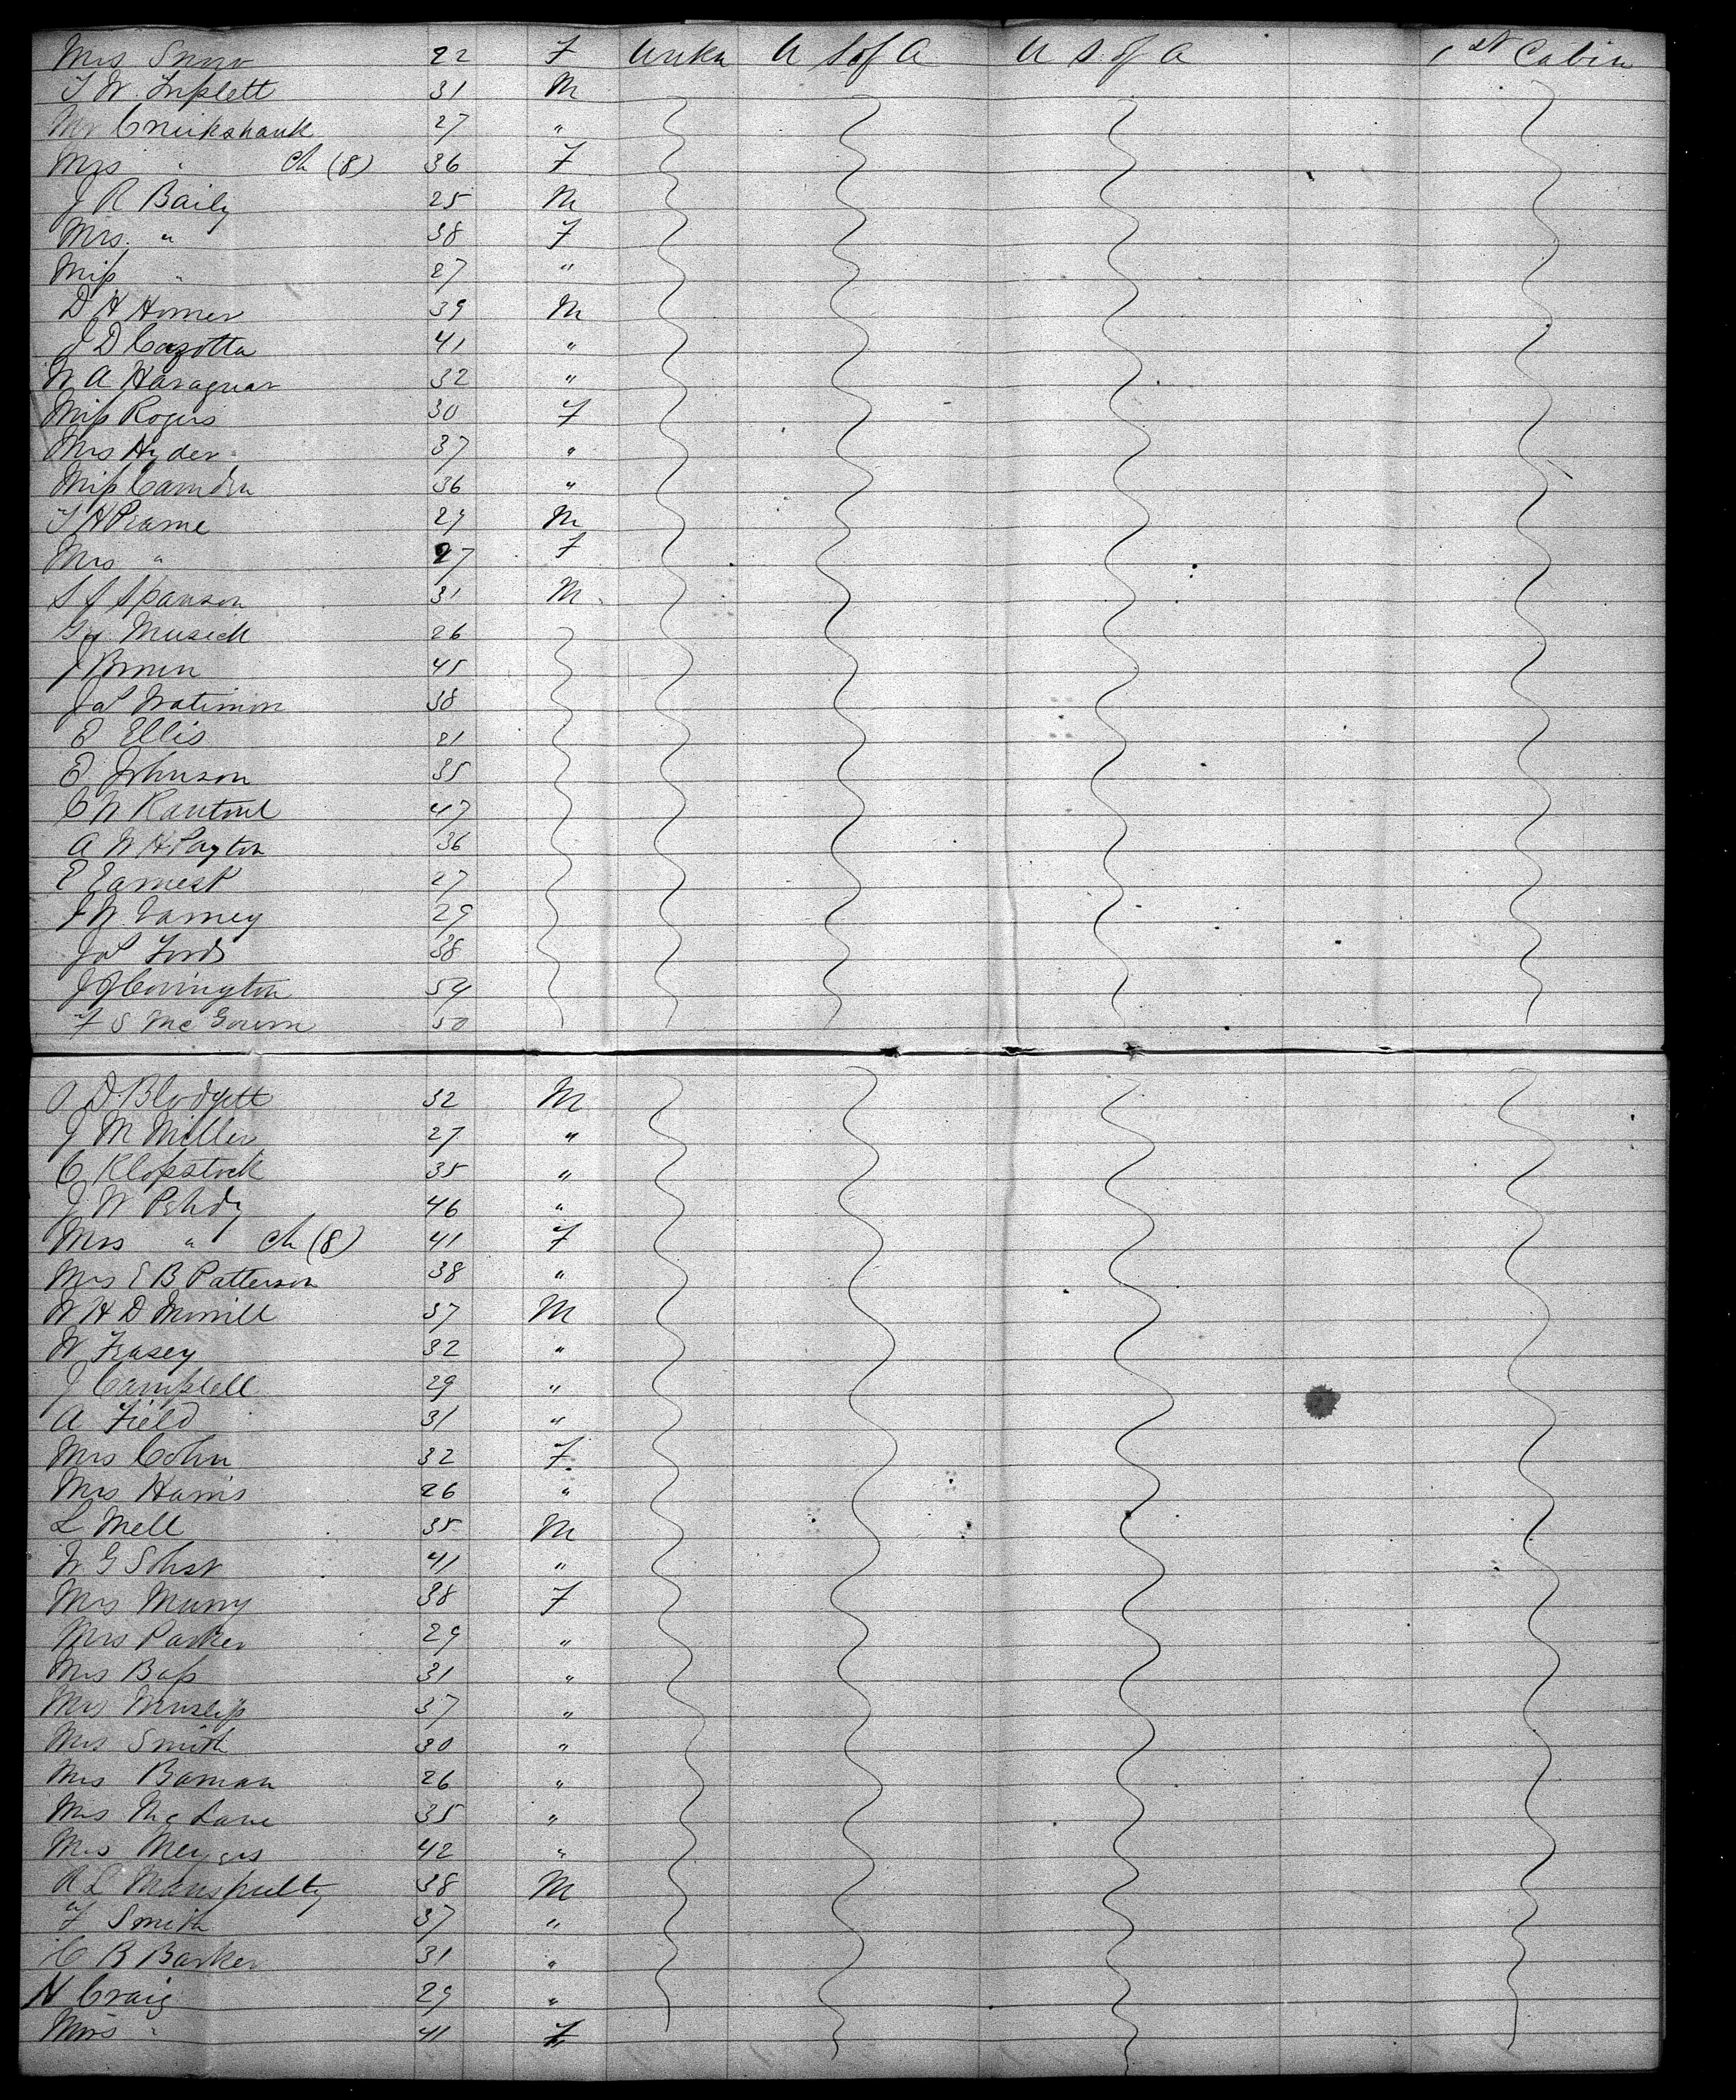 Mrs Snow 22 F unkn U S of A U S of A 1st Cabin
T W. Triplett 31 M
Mr Cruikshank 27 "
Mrs " Ch (8) 36 F
J R Baily 25 M
Mrs. " 38 F
Miss " 27 "
D H Homer 39 M
J D Cazotta 41 "
W A Haraguar 32 "
Miss Rogers 30 F
Mrs Hyder 37 "
Miss Camden 36 "
T H Prame 29 M
Mrs " 27 F
S J Spanson 31 M
Musick 26
J Brown 45
Jas Watimon 38
E Ellis 21
E Johnson 35
C W Rantoul 47
A W H Payton 36
E Earnest 27
J W Varney 29
Jas Fords 38
J J Covington 54
F S McGovern 50
A D. Blodgett 32 M
J M Miller 27 "
C Klopstock 35 "
J W 46 "
Mrs " Ch (8) 41 F
Mrs E B Patterson 38 "
W H D Merrill 37 M
W Frasey 32 "
J Campbell 29 "
A Field 31 "
Mrs Cohn 32 F
Mrs Harris 26 "
L Mell 35 M
W G Sohst 41 "
Mrs Murry 38 F
Mrs Parker 29 "
Mrs Bass 31 "
Mrs 37 "
Mrs Smith 30 "
Mrs Boman 26 "
Mrs McLane 35 "
Mrs Meyers 42 "
R L 38 M
F Smith 37 "
C B Barker 31 "
N Craig 29 "
Mrs " 41 F